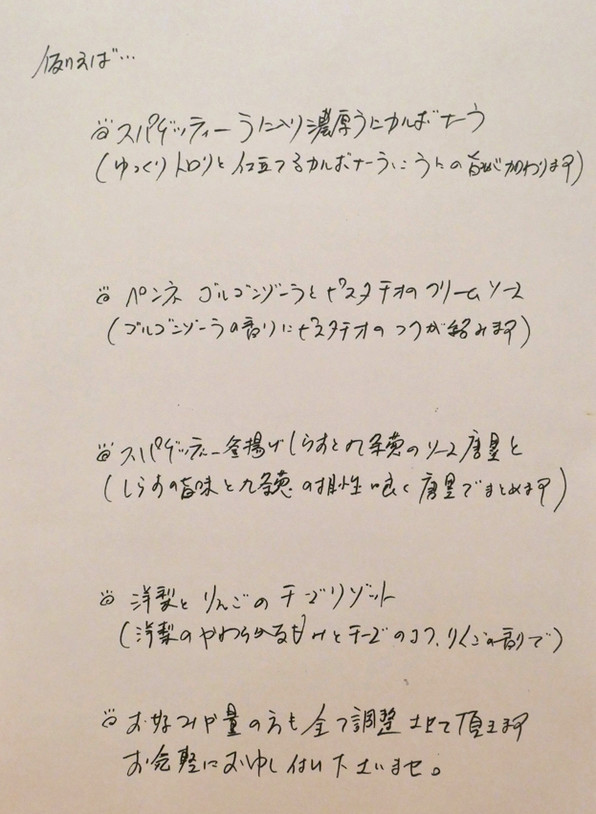 例えば…
スパゲッティー うに入り濃厚うにカルボナーラ
(ゆっくりトロりと仕立てるカルボナーラに うにの旨みが加わります)
ペンネ ゴルゴンゾーラとピスタチオのクリームソース
(ゴルゴンゾーラの香りにピスタチオのコクが絡みます)
スパゲッティー 釜揚げしらすと九条葱のソース 唐墨と
(しらすの旨味と九条葱の相性良く 唐墨でまとめます)
洋梨とりんごのチーズリゾット
(洋梨のやわらかな甘みとチーズのコク、りんごの香りで)
お好みや量の方も全て調整させて頂きます
お気軽にお申し付け下さいませ。